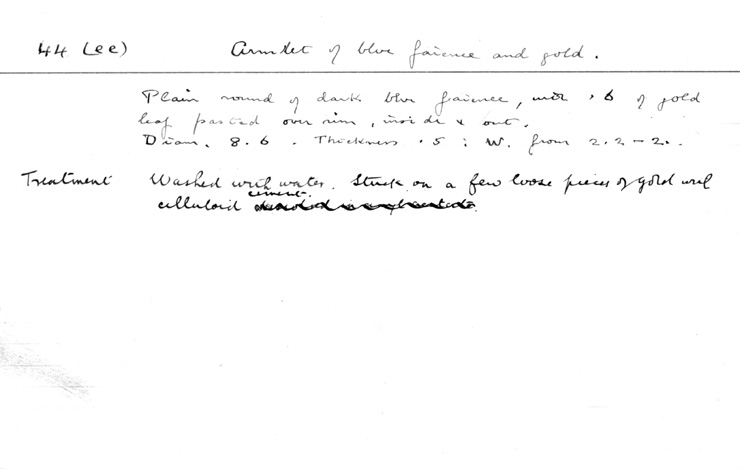 44 (ee) Armlet of blue faience and gold.
Plain round of dark blue faience, with .6 of gold
leaf pasted over rim, inside & out.
Diam. 8.6. Thickness .5; W. from 2.2-2.
Treatment Washed with water. Stuck on a few loose pieces of gold with
cement.
celluloid